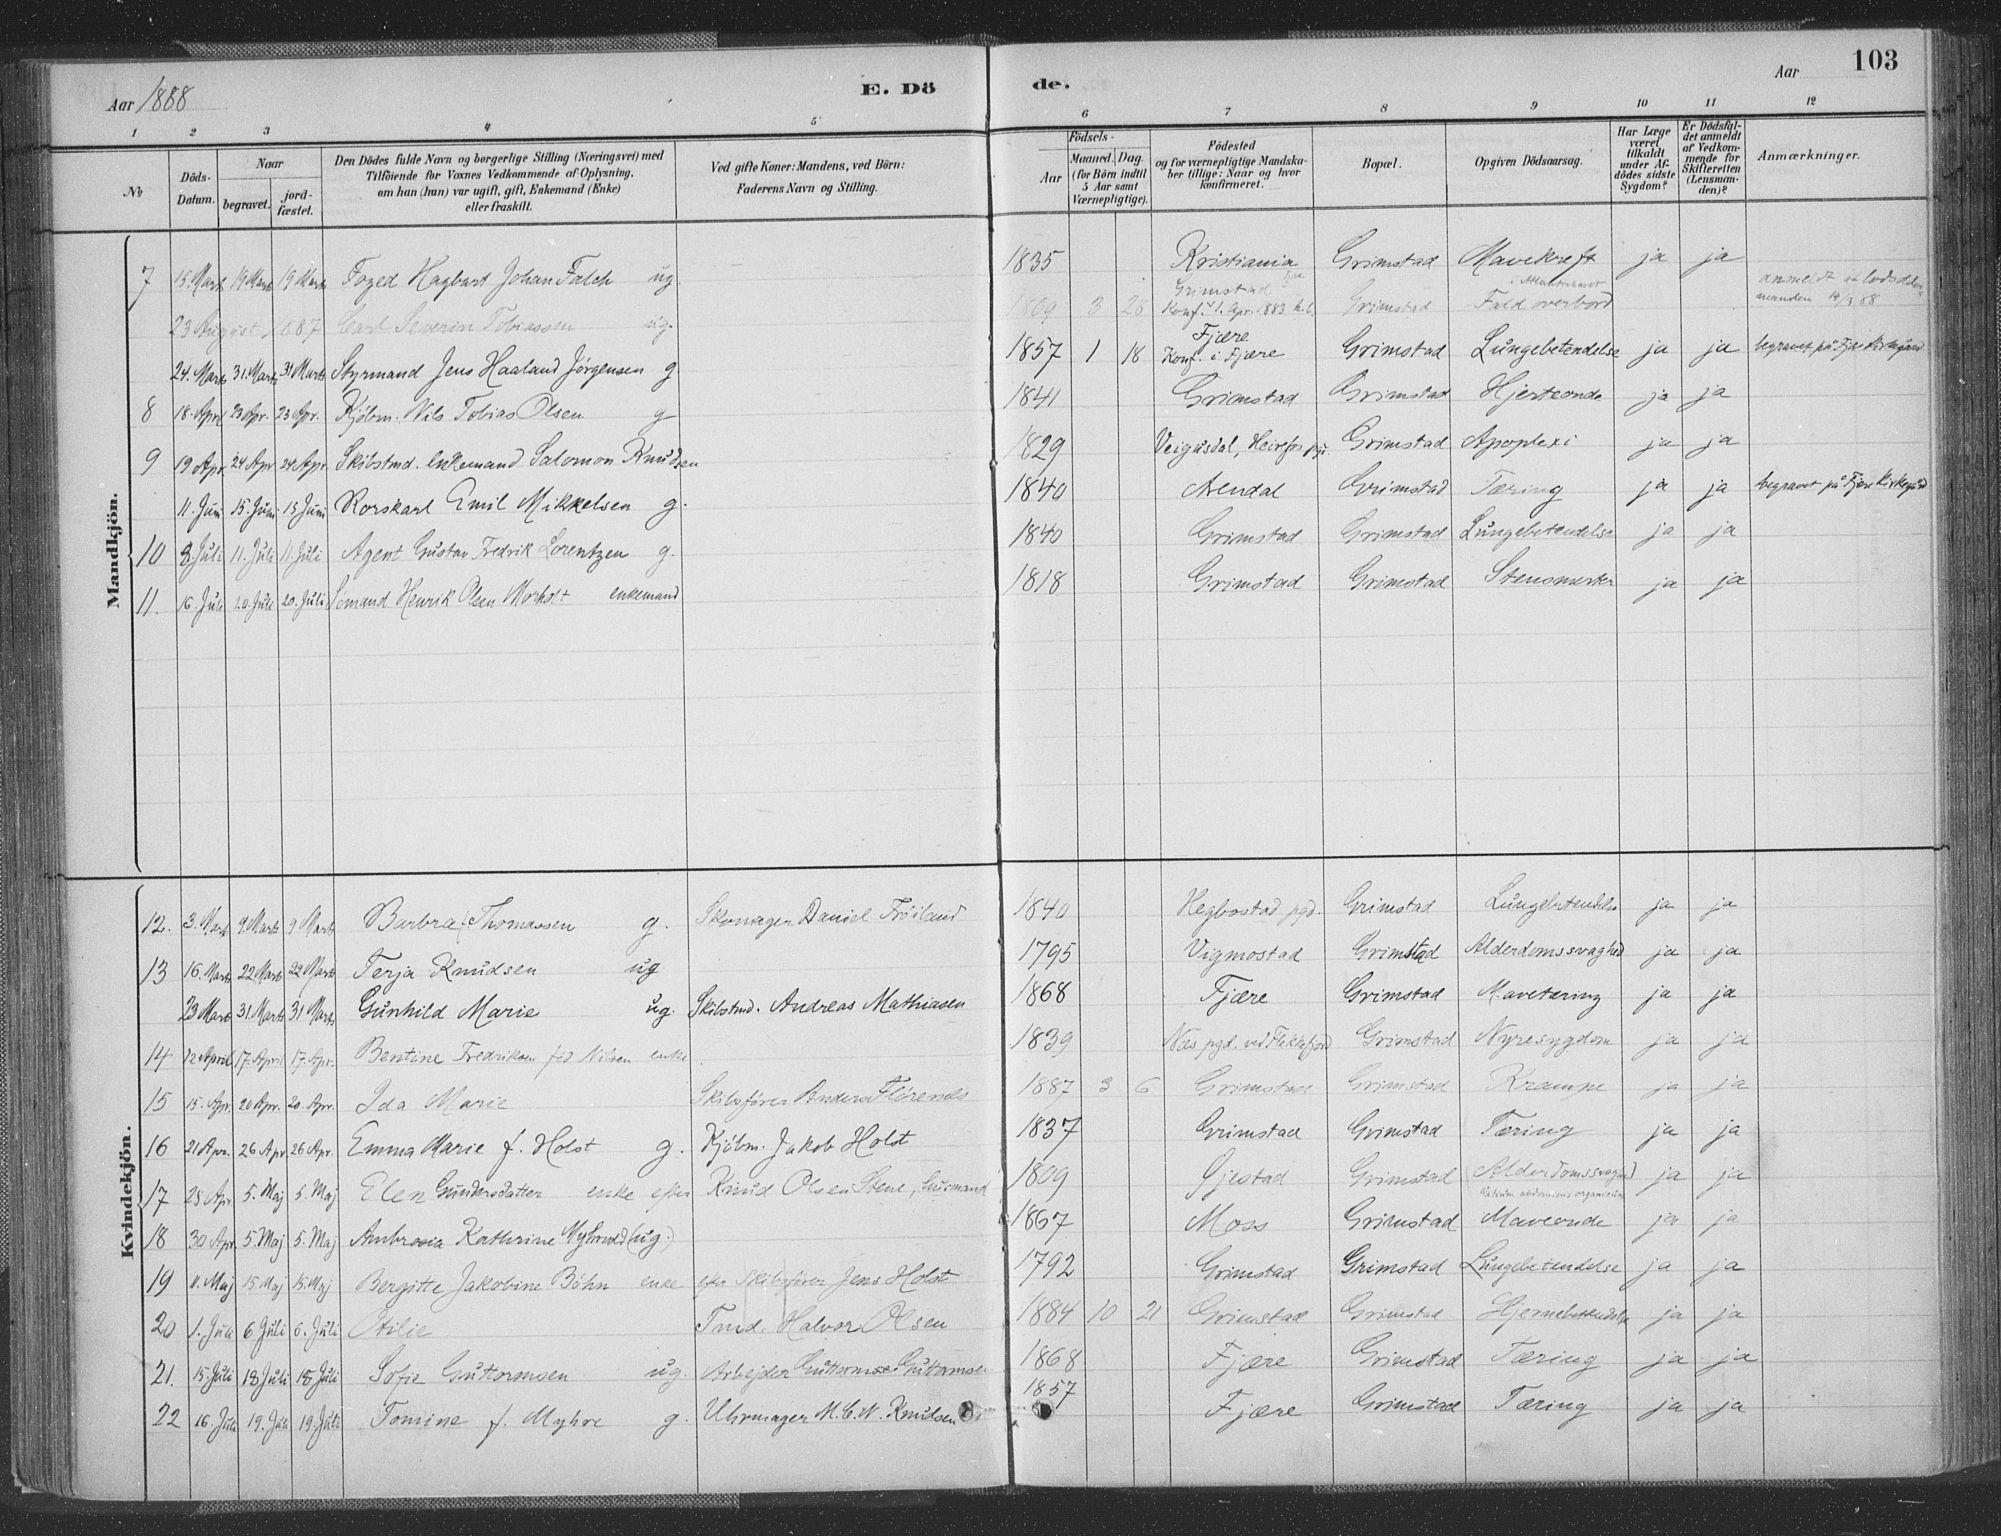 Aar 1888 E. Dö
de. Aar 103
1 2 3 4 5 6 7 8 9 10 11 12
№ Döds-Datum. Naar begravet. jord-fæstet. Den Dödes fulde Navn og borgerlige Stilling (Næringsvei) med Tilföiende for Voxnes Vedkommende af Oplysning, om han (hun) var ugift, gift, Enkemand (Enke) eller fraskilt. Ved gifte Koner: Mandens, ved Börn: Faderens Navn og Stilling.
Födsels- Aar Maaned. Dag. (for Börn indtil 5 Aar samt Værnepligtige). Födested og for værnepligtige Mandskaber tillige: Naar og hvor konfirmeret. Bopæl. Opgiven Dödsaarsag. Har Læge været tilkaldt under Afdödes sidste Sygdom? Er Dödsfaldet anmeldt af Vedkommende for Skifteretten (Lensmanden)? Anmærkninger.
Mandkjön.
7 15. Marts 19 Marts 19 Marts Foged Hagbart Johan Falch ug. 1835 Kristiania Grimstad Mavekreft ja ja
23 August 1887 Carl Severin Tobiassen ug. 1869 3 28 Grimstad Konf. 1. Apr. 1883 Grimstad Fald overbord i Atlanterhavet anmeldt af
24. Marts 31. Marts 31 Marts Styrmand Jens Haaland Jørgensen g. 1857 1 18 Fjære Konf. i Fjære Grimstad Lungebetendelse ja ja begravet på Fjære Kirkegård
8 18. April 23 Apr. 23 Apr. Kjöbm. Nils Tobias Olsen g 1841 Grimstad Grimstad Hjerteonde ja ja
9 19 Apr. 24 Apr 24. Apr. Skibstmd. Enkemand Salomon Knudsen 1829 Veigusdal, Grimstad Apoplexi ja ja
11. Juni 15. Juni 15 Juni Rorskarl Emil Mikkelsen g. 1840 Arendal Grimstad Tæring ja ja begravet på Fjære Kirkegård
10 8. Juli 11. Juli 11. Juli Agent Gustav Fredrik Lorentzen g. 1840 Grimstad Grimstad Lungebetendelse ja ja
11. 16. Juli 20. Juli 20. Juli Sömand Henrik Olsen Morholt enkemand 1818 Grimstad Grimstad Stensmerter ja ja
Kvindekjön.
12. 3. Mart 9. Marts 9 Marts Barbra f. Thomassen g. Skomager Daniel Fröiland 1840 Hegbostad pgd. Grimstad Lungebetendelse ja ja
13 16. Marts 22 Marts 22 Marts Terja Knudsen ug 1795 Vigmostad Grimstad Alderdomssvaghed ja ja
23 Marts 31. Marts 31 Marts Gunhild Marie ug. Skibstmd. Andreas Mathiasen 1868 Fjære Grimstad Mavetæring ja ja
14 12 April 17. April 17. Apr. Bentine Fredriksen fød Nilsen enke 1839 Næs pgd. ved Flekkefjord Grimstad Nyresygdom ja ja
15 15. Apr. 20 Apr. 20. Apr. Ida Marie Skibsfører Anders Flörends 1887 3 6 Grimstad Grimstad Krampe ja ja
16 21 Apr. 26 Apr 26 Apr. Emma Marie f. Holst g. Kjöbm. Jakob Holst 1837 Grimstad Grimstad Tæring ja ja
17 28 Apr 5. Maj 5. Maj Elen Gundersdatter enke efter Knud Olsen Stene, Husmand 1809 Øjestad Grimstad Alderdomssvaghed ja ja
18 30 Apr 5. Maj 5. Maj Ambrosia Kathrine Myhrvold (ug.) 1867 Moss Grimstad Maveonde ja ja
19 11. Maj 15. Maj 15. Maj Bergitte Jakobine Böhn enke efter Skibsfører Jens Holst 1792 Grimstad Grimstad Lungebetendelse ja ja
20 1. Juli 6 Juli 6. Juli Otilie Tmd. Halvor Olsen 1884 10 21 Grimstad Grimstad Hjernebetendelse ja ja
21. 15. Juli 18 Juli 18 Juli Sofie Guttormsen ug. Arbejder Guttorm Guttormsen 1868 Fjære Grimstad Tæring ja ja
22 16. Juli 19. Juli 19. Juli Tomine f. Myhre g. Uhrmager M.C.N. Knudsen 1857 Fjære Grimstad Tæring ja ja